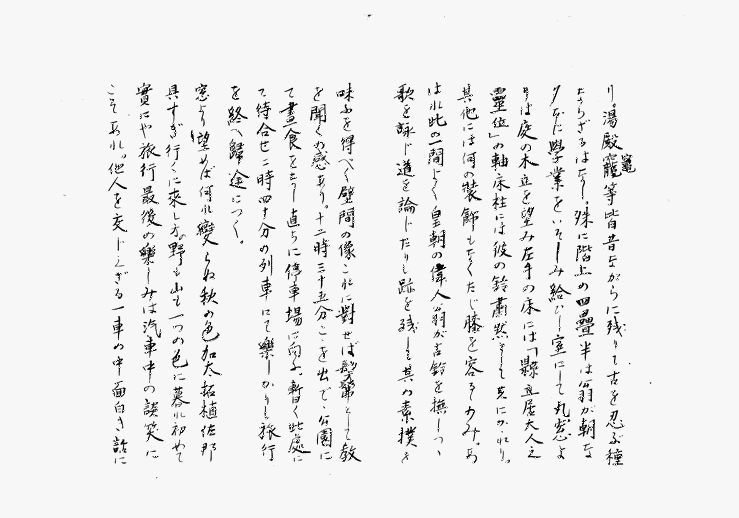 り。湯殿竈等皆昔ながらに残りて古を忍ぶ種
ならざるはなし。殊に階上の四疊半は翁が朝な
夕なに學業をいそしみ給ひし室にして丸窓よ
りは庭の木立を望み左手の床には「縣立居大人之
靈位」の軸床柱には彼の鈴肅然として共にかゝれり。
其他には何の裝飾もなくたゞ膝を容るゝのみ。あ
はれ此の一間よ、皇朝の偉人、翁が古鈴を撫しつゝ
歌を詠じ道を論じたりし跡を残し其の素撲さ
味ふを得べく壁間の像これに對せば髣髴として教
を聞くの感あり。十二時三十五分こゝを出で、公園に
て晝食をなし直ちに停車場に向ふ、暫く此處に
て待合せ二時四十分の列車にて樂しかりし旅行
を終へ歸途につく。
窓より望めば何れ變らぬ秋の色加太拓植佐那
具すぎ行くに來し方の野も山も一つの色に暮れ初めて
實にや旅行最後の樂しみは汽車中の談笑に
こそあれ。他人を交じへざる一車の中面白き話に